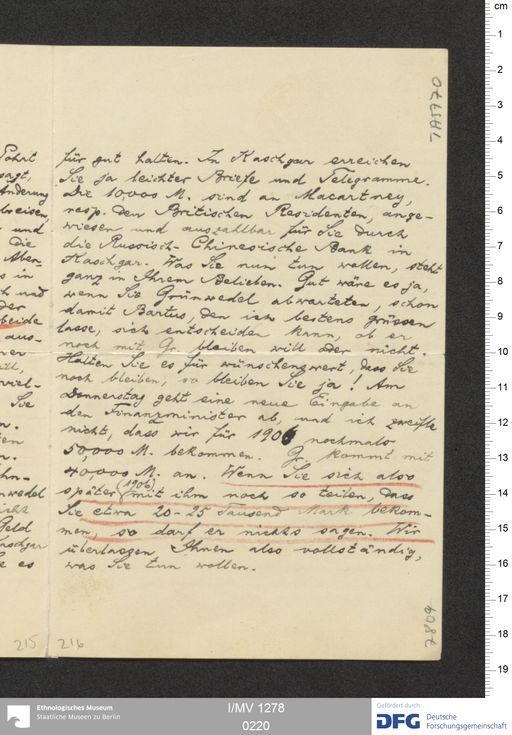 TA5770
Fahrt
sagt,
Änderung
breisen,
und
Die
Aben-
s in
ch und
der
beide
aus-
ner
ill,
wirk-
Sie
n.
en
n.
hn-
nwedel
icht
Geld
aschgar
e es
für gut halten. In Kaschgar erreichen
Sie ja leichter Briefe und Telegramme.
Die 10,000 M. sind an Macartney,
resp. den Britischen Residenten, ange-
wiesen und auszahlbar für Sie durch
die Russisch-Chinesische Bank in
Kaschgar. Was Sie nun tun wollen, steht
ganz in Ihrem Belieben. Gut wäre es ja,
wenn Sie Grünwedel abwarteten, schon
damit Bartus, den ich bestens grüssen
lasse, sich entscheiden kann, ob er
noch mit Gr. bleiben will oder nicht.
Halten Sie es für wünschenswert, dass Sie
noch bleiben, so bleiben Sie ja! Am
Donnerstag geht eine neue Eingabe an
den Finanzminister ab, und ich zweifle
nicht, dass wir für 1906 nochmals
50,000 M. bekommen. Gr. kommt mit
40,000 M. an. Wenn Sie sich also
später (1906) mit ihm noch so teilen, dass
Sie etwa 20-25 Tausend Mark bekom-
men, so darf er nichts sagen. Wir
überlassen Ihnen also vollständig,
was Sie tun wollen.
215
216
7809
cm
1
2
3
4
5
6
7
8
9
10
11
12
13
14
15
16
17
18
19
Ethnologisches Museum
Staatliche Museen zu Berlin
I/MV 1278
0220
Gefördert durch
DFG Deutsche
Forschungsgemeinschaft